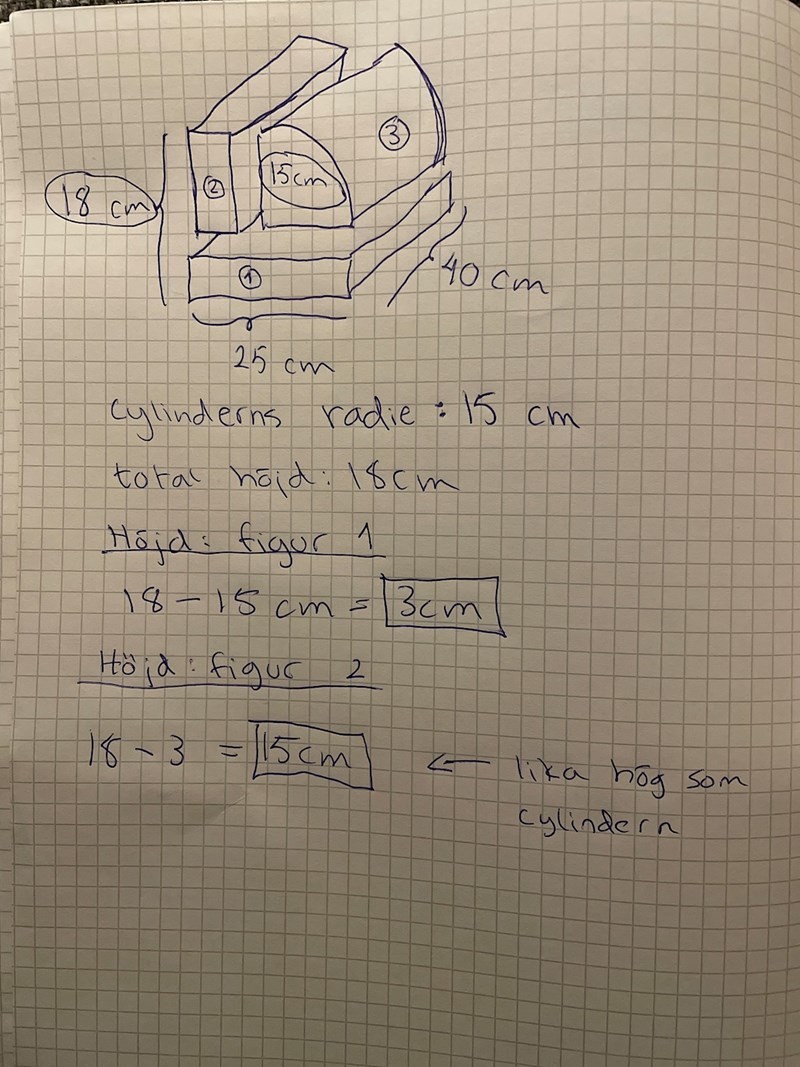 ③
15cm
②
18 cm
①
40 cm
25 cm
cylinderns radie : 15 cm
total höjd: 18cm
Höjd: figur 1
18 - 15 cm = 3cm
Höjd: figur 2
18 - 3 = 15cm ← lika hög som
cylindern